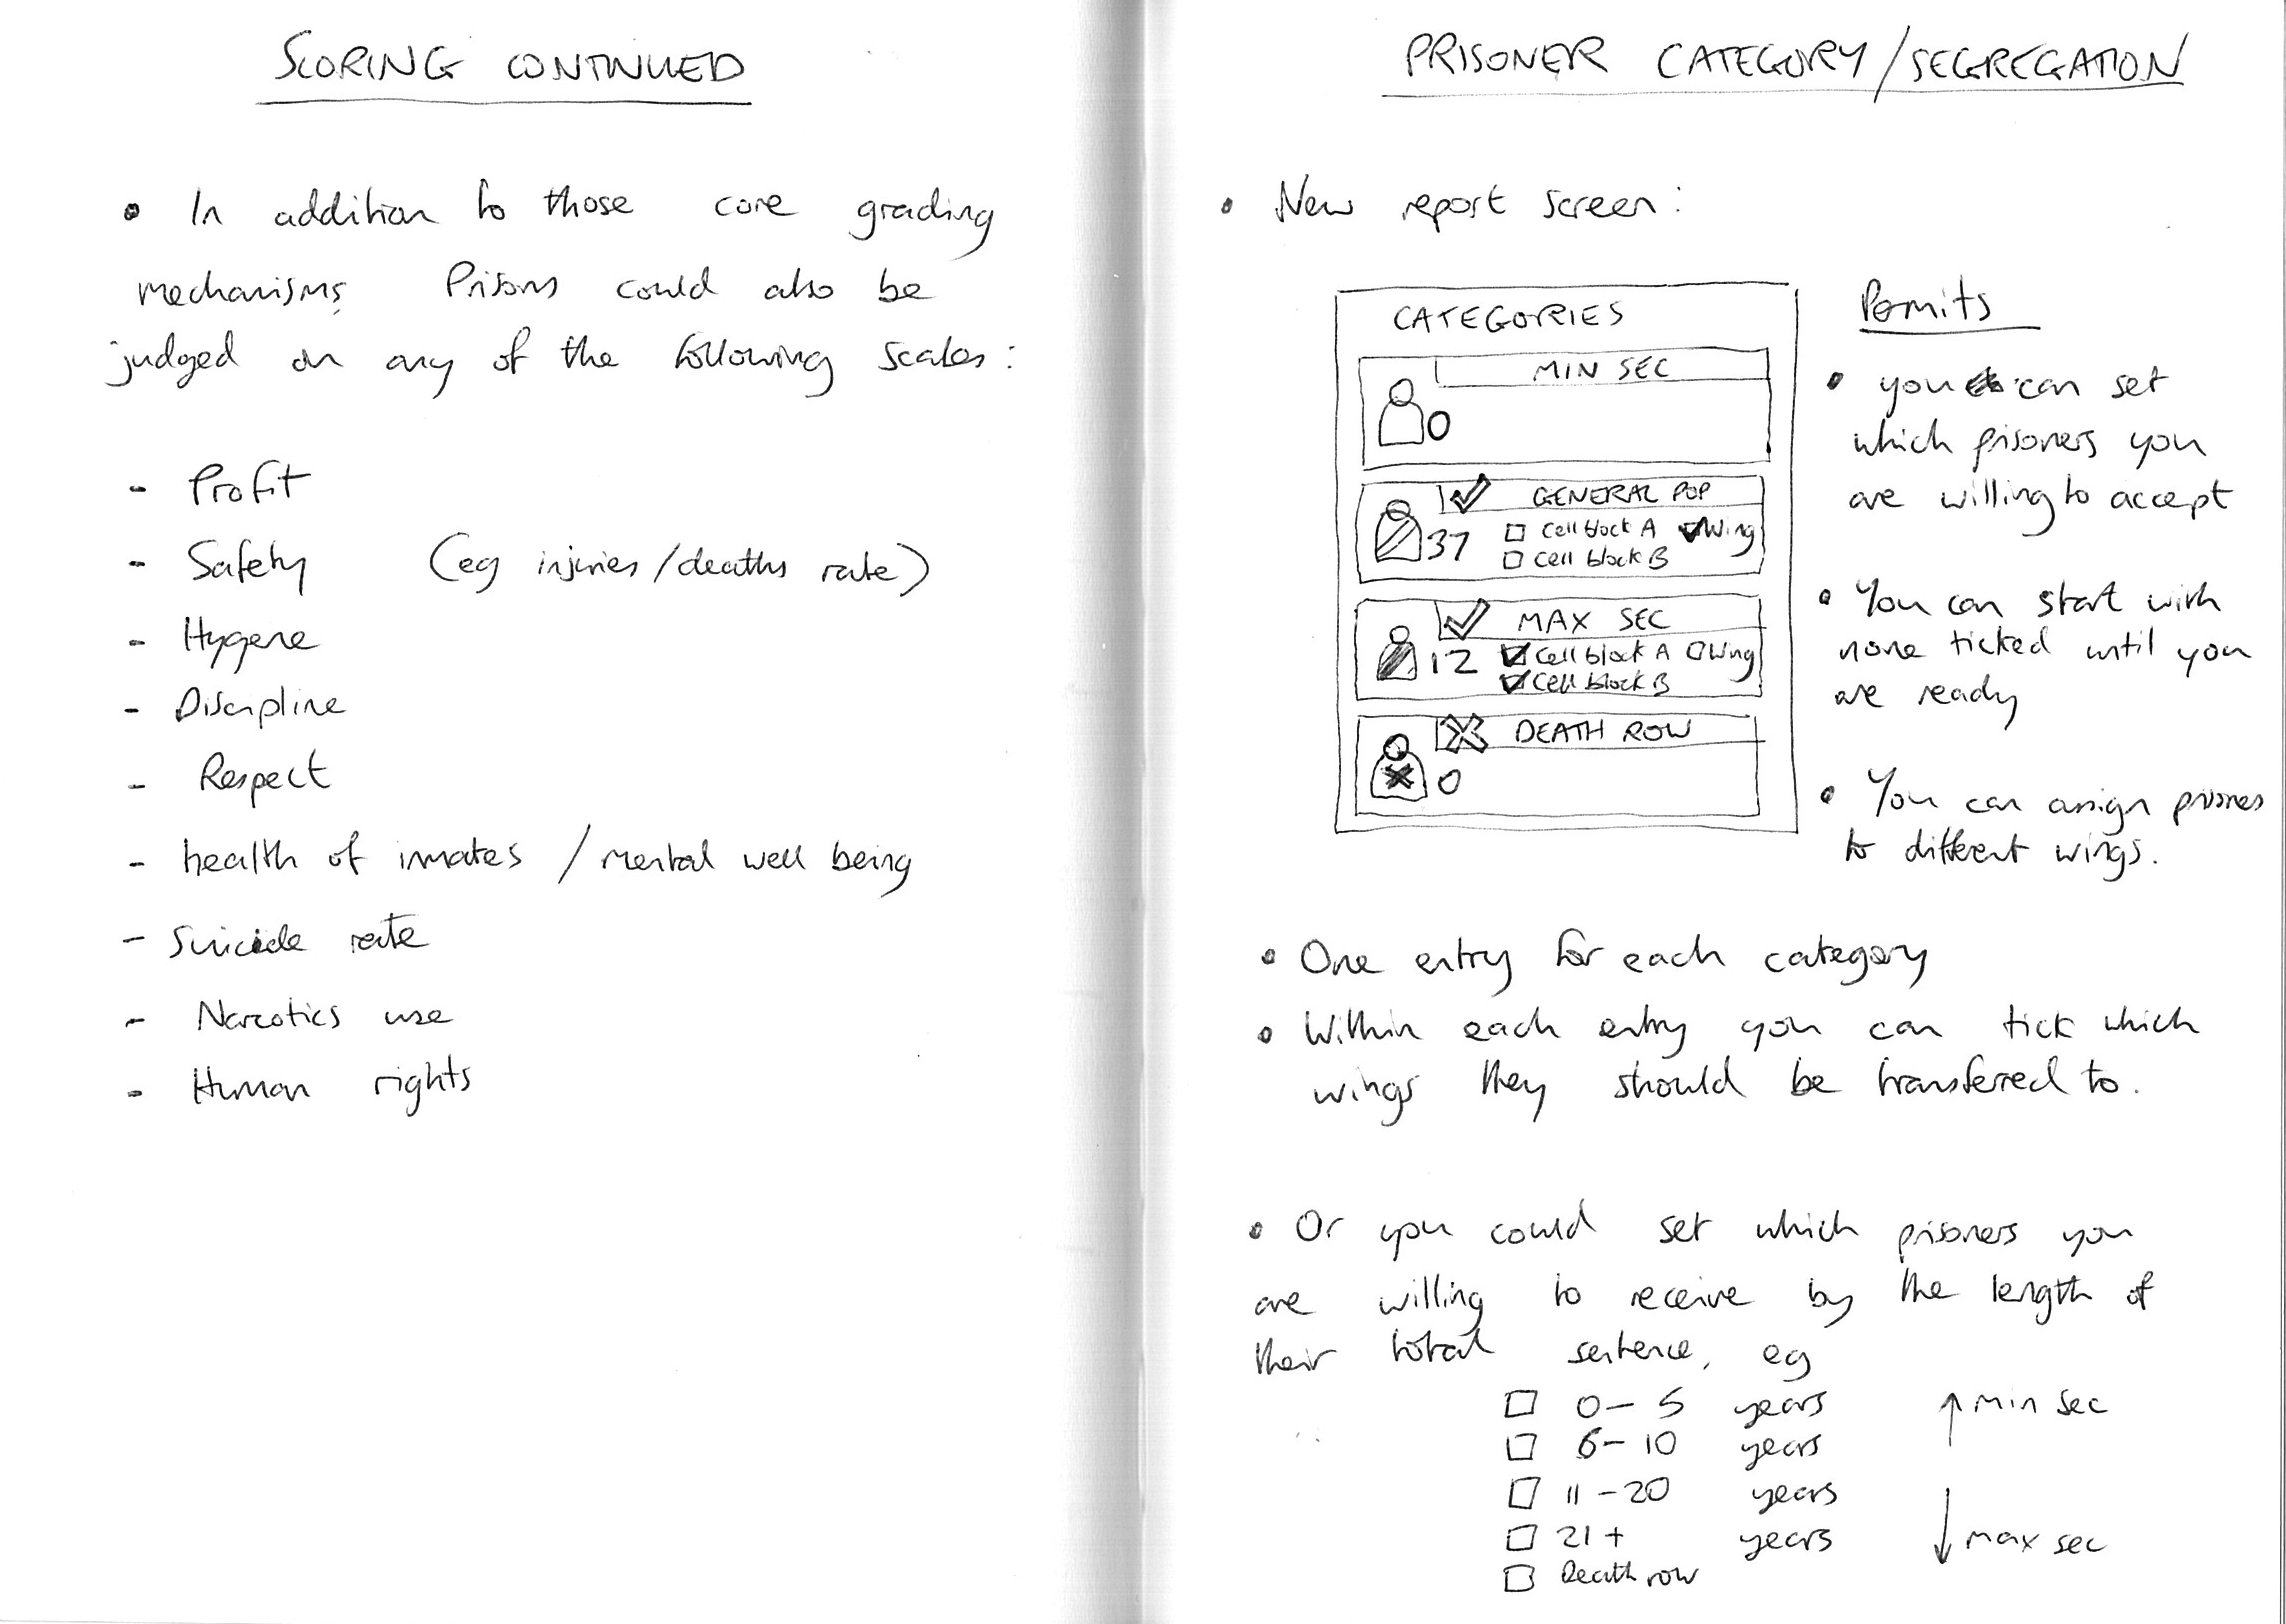 SCORING CONTINUED
• In addition to those core grading
mechanisms, Prisons could also be
judged on any of the following scales:
- Profit
- Safety (eg injuries/deaths rate)
- Hygene
- Discipline
- Respect
- health of inmates / mental well being
- Suicide rate
- Narcotics use
- Human rights
PRISONER CATEGORY/SEGREGATION
• New report screen:
CATEGORIES
MIN SEC
0
GENERAL POP
37 Cell block A Wing
Cell block B
MAX SEC
12 Cell block A Wing
Cell block B
DEATH ROW
0
Permits
• you can set
which prisoners you
are willing to accept
• You can start with
none ticked until you
are ready
• You can assign prisoners
to different wings.
• One entry for each category
• Within each entry you can tick which
wings they should be transferred to.
• Or you could set which prisoners you
are willing to receive by the length of
their total sentence, eg
0 - 5 years ↑ min sec
6 - 10 years
11 - 20 years
21 + years ↓ max sec
Death row